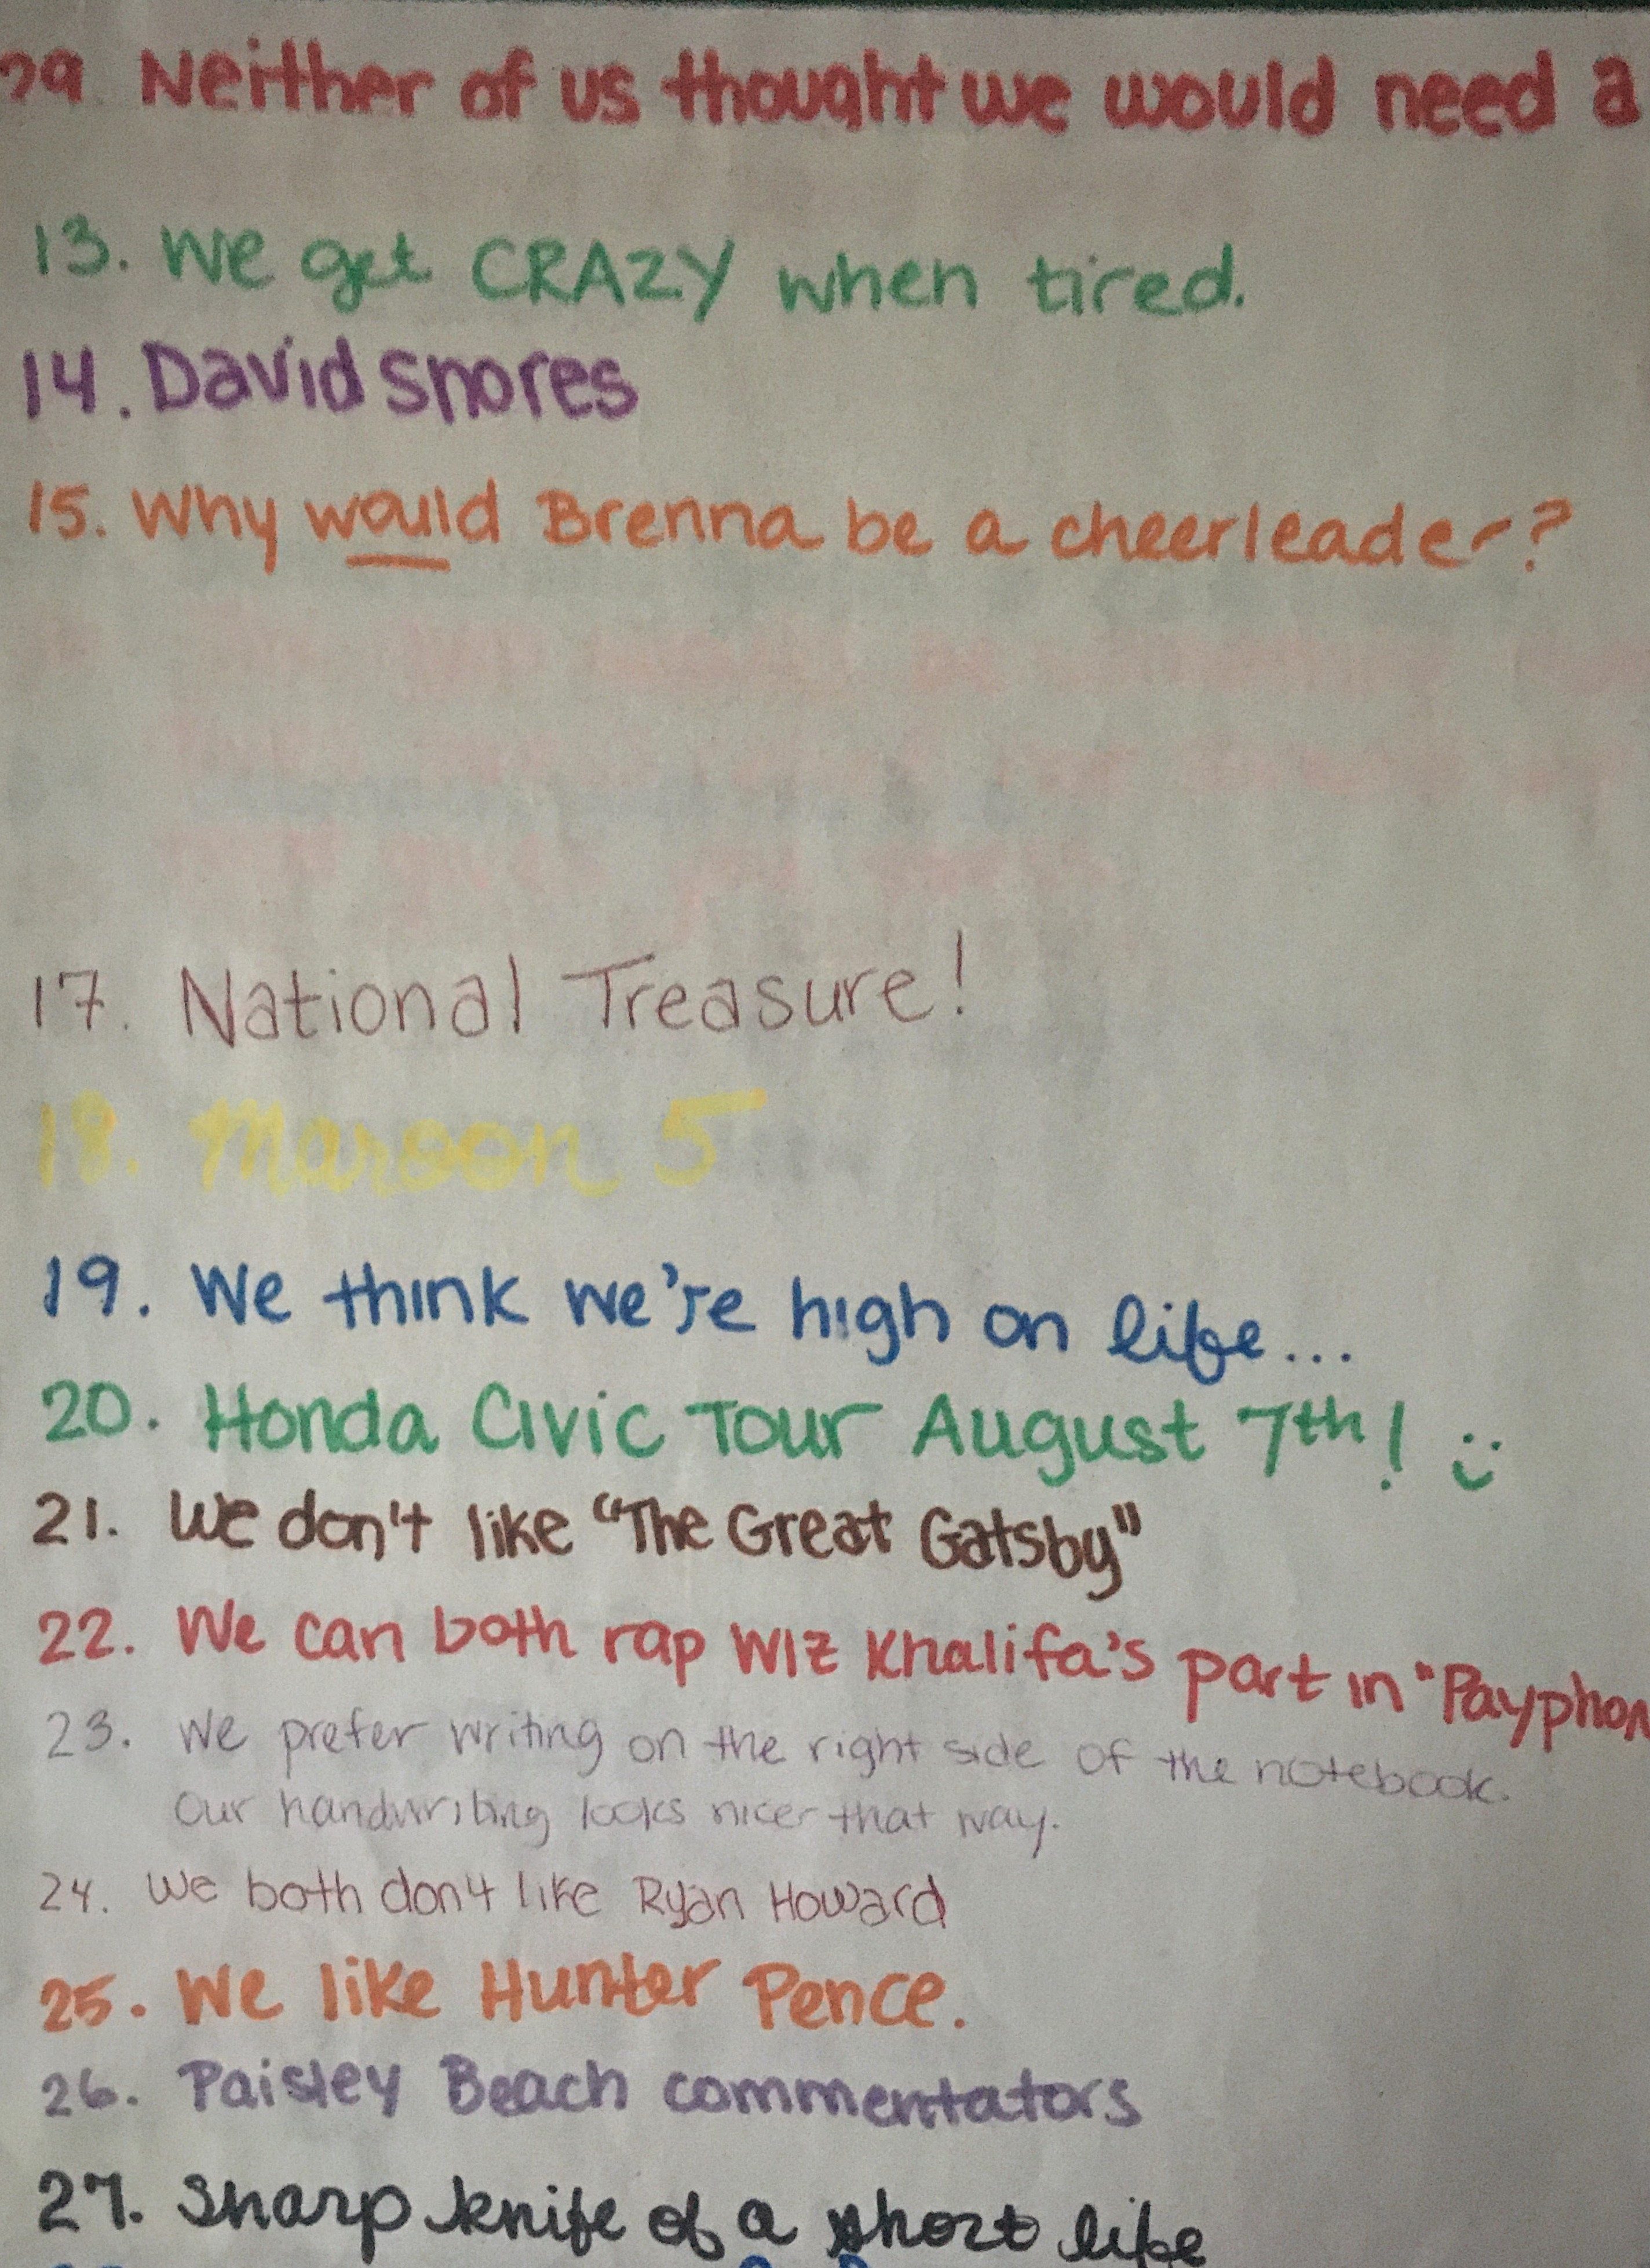 29. Neither of us thought we would need a
13. We get CRAZY when tired.
14. David snores
15. Why would Brenna be a cheerleader?
17. National Treasure!
18. Maroon 5
19. We think we're high on life...
20. Honda Civic Tour August 7th! :)
21. We don't like "The Great Gatsby"
22. We can both rap Wiz Khalifa's part in "Payphon
23. We prefer writing on the right side of the notebook.
Our handwriting looks nicer that way.
24. We both don't like Ryan Howard
25. We like Hunter Pence.
26. Paisley Beach commentators
27. Sharp knife of a short life